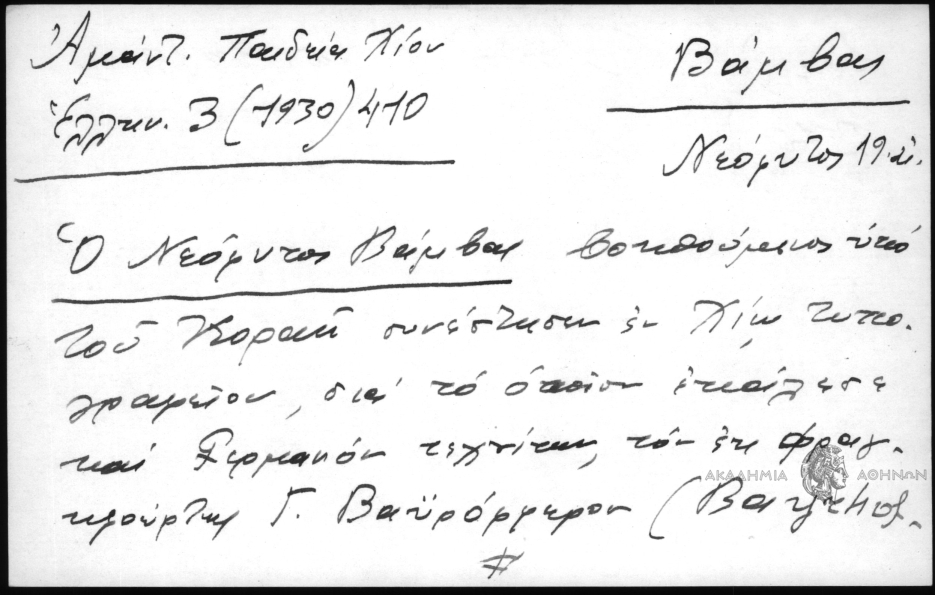 Ἀμάντ. Παιδεία Χίου
Ἑλλην. 3 (1930) 410
Βάμβας
Νεόφυτος 19. αἰ.
Ὁ Νεόφυτος Βάμβας βοηθούμενος ὑπό
τοῦ Κοραῆ συνέστησεν ἐν Χίῳ τυπο-
γραφεῖον, διά τό ὁποῖον ἐκάλεσε
καί Γερμανόν τεχνίτην, τόν ἐκ Φραγ-
κφούρτης Γ. Βαϋρόφφερον
ΑΚΑΔΗΜΙΑ ΑΘΗΝΩΝ